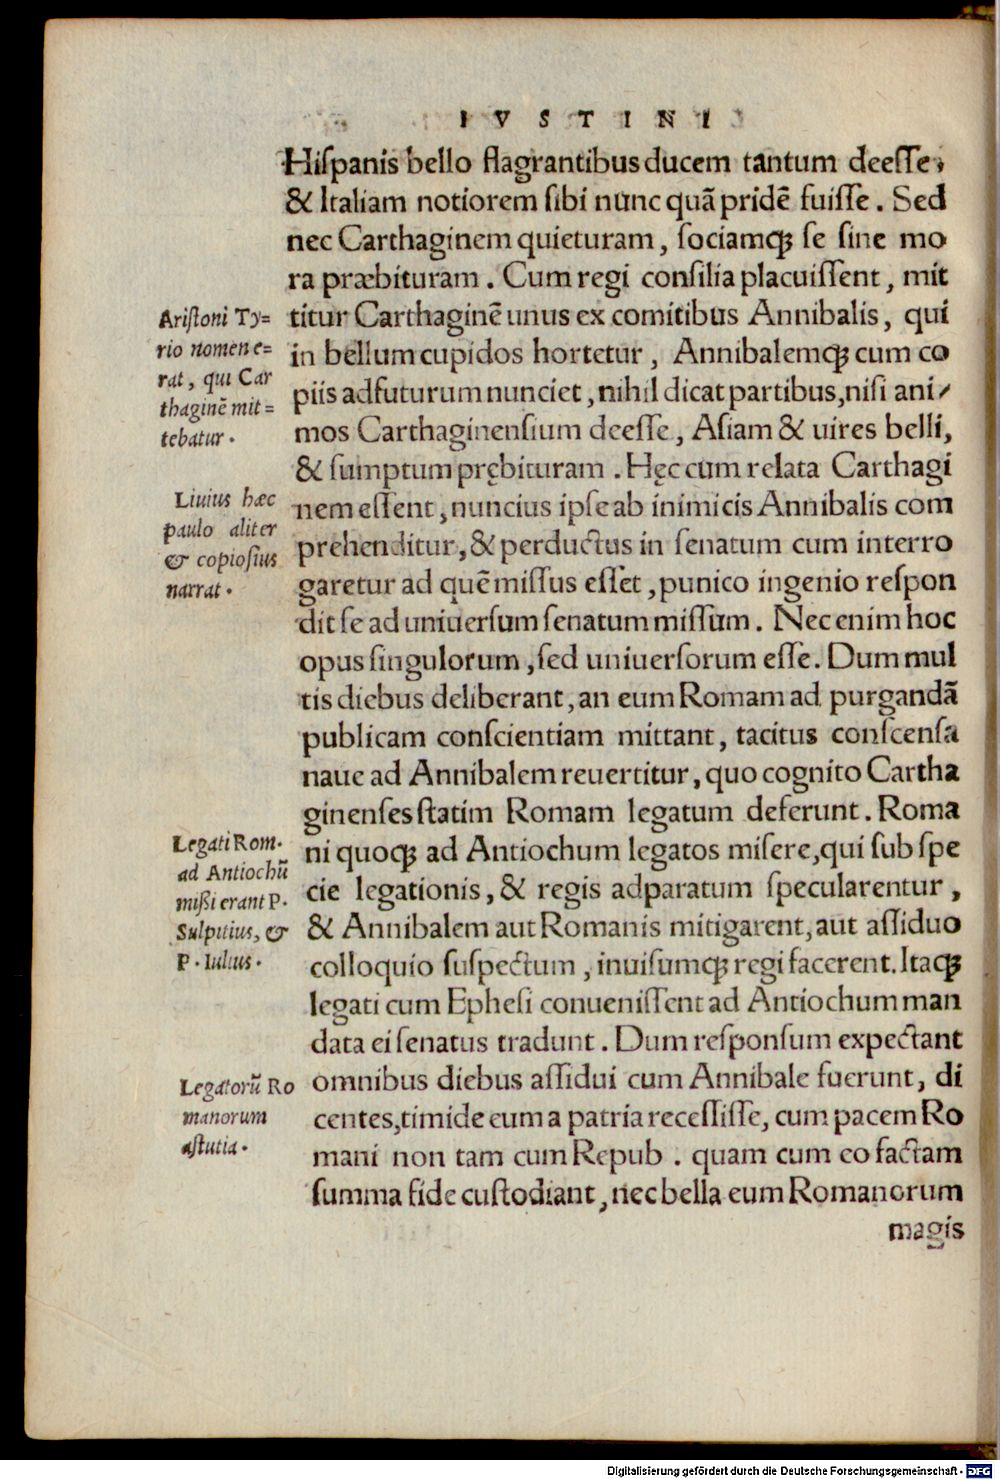 IVSTINI
Hiſpanis bello flagrantibus ducem tantum deeſſe,
& Italiam notiorem ſibi nunc quã pridẽ fuiſſe. Sed
nec Carthaginem quieturam, ſociamq; ſe ſine mo
ra præbituram. Cum regi conſilia placuiſſent, mit
titur Carthaginẽ unus ex comitibus Annibalis, qui
in bellum cupidos hortetur, Annibalemq; cum co
piis adfuturum nunciet, nihil dicat partibus, niſi ani/
mos Carthaginenſium deeſſe, Aſiam & uires belli,
& ſumptum prębituram. Hęc cum relata Carthagi
nem eſſent, nuncius ipſe ab inimicis Annibalis com
prehenditur, & perductus in ſenatum cum interro
garetur ad quẽ miſſus eſſet, punico ingenio reſpon
dit ſe ad uniuerſum ſenatum miſſum. Nec enim hoc
opus ſingulorum, ſed uniuerſorum eſſe. Dum mul
tis diebus deliberant, an eum Romam ad purgandã
publicam conſcientiam mittant, tacitus conſcenſa
naue ad Annibalem reuertitur, quo cognito Cartha
ginenſes ſtatim Romam legatum deferunt. Roma
ni quoq; ad Antiochum legatos miſere, qui ſub ſpe
cie legationis, & regis adparatum ſpecularentur,
& Annibalem aut Romanis mitigarent, aut aſſiduo
colloquio ſuſpectum, inuiſumq; regi facerent. Itaq;
legati cum Epheſi conueniſſent ad Antiochum man
data ei ſenatus tradunt. Dum reſponſum expectant
omnibus diebus aſſidui cum Annibale fuerunt, di
centes, timide eum a patria receſſiſſe, cum pacem Ro
mani non tam cum Repub. quam cum eo factam
ſumma fide cuſtodiant, nec bella eum Romanorum
magis
Ariſtoni Ty=
rio nomen e=
rat, qui Car
thaginẽ mit=
tebatur.
Liuius hæc
paulo aliter
& copioſius
narrat.
Legati Rom.
ad Antiochũ
miſsi erant P.
Sulpitius, &
P. Iulius.
Legatorũ Ro
manorum
aſtutia.
Digitalisierung gefördert durch die Deutsche Forschungsgemeinschaft - DFG